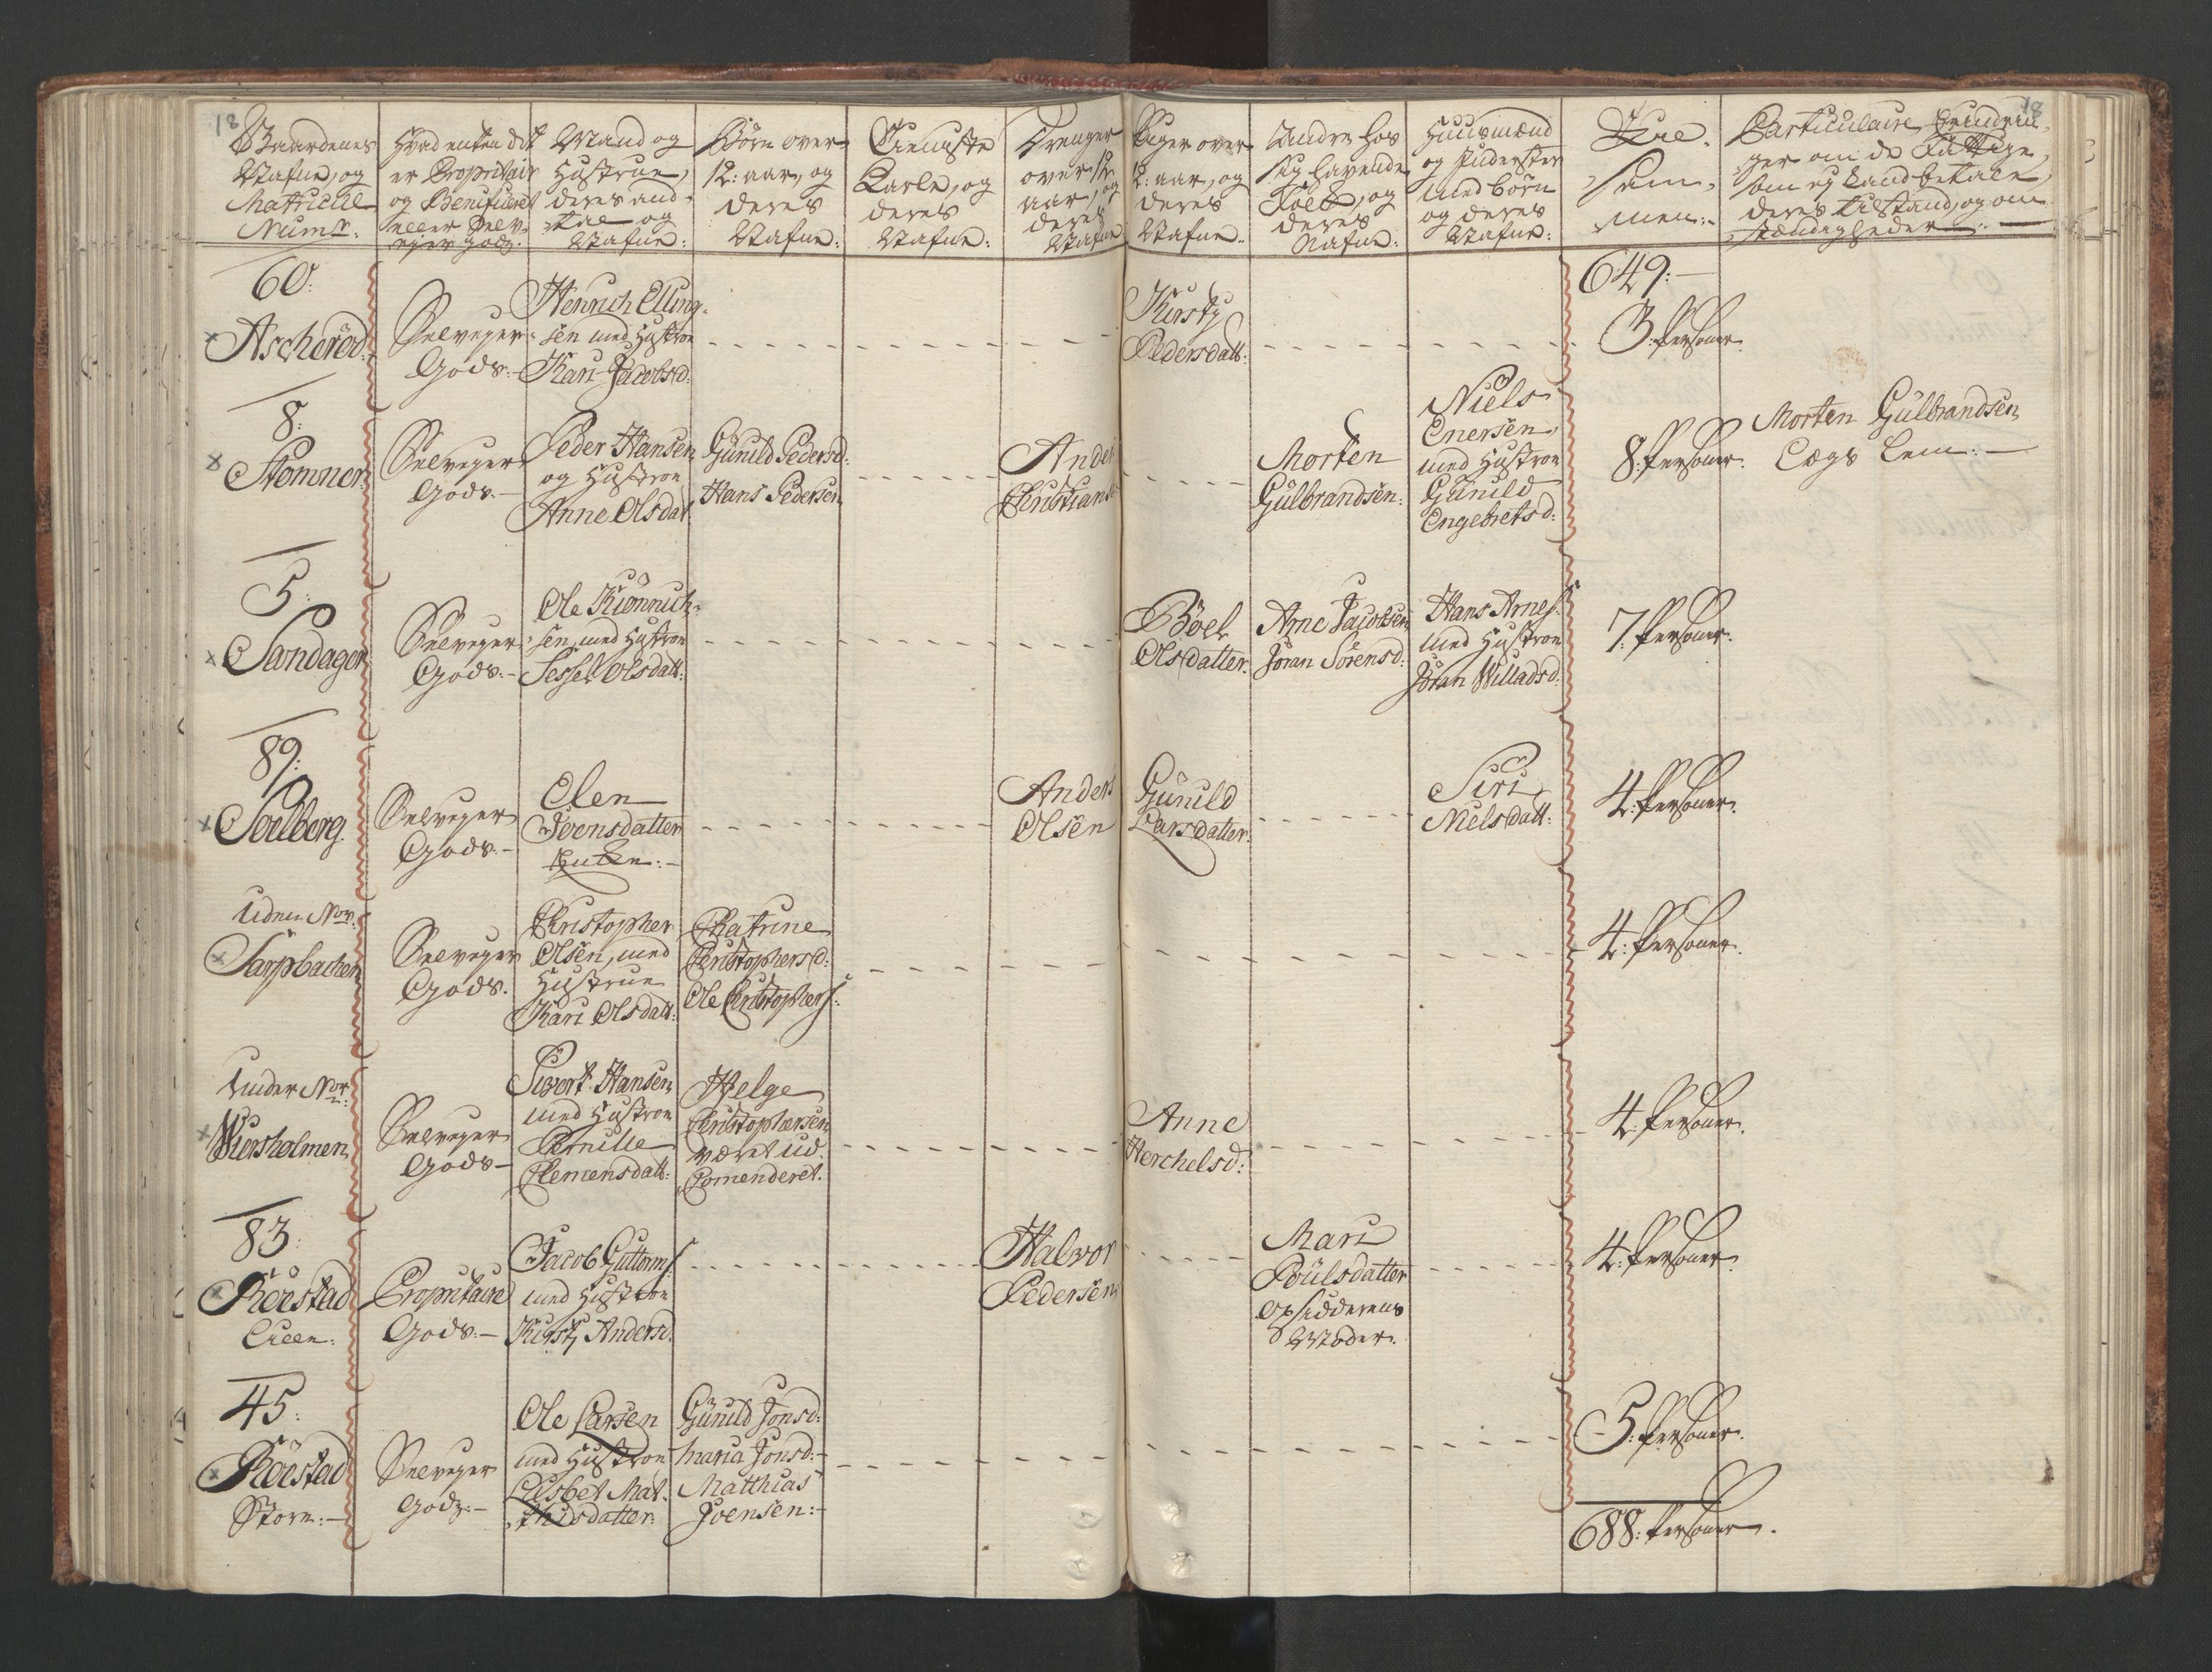 18
18
Gaardenes
Nafne, og
Matricul
Num:r:
Hvad enten det
er Propritair
og Beneficeret
eller Selv-
eyer Gods.
Mand og
Hustrue,
deres and-
tal og
Nafne:
Børn over
12: aar, og
deres
Nafne:
Tieniste
Karle, og
deres
Nafne:
Drenger
over 12
aar, og
deres
Nafne
Piger over
12: aar, og
deres
Nafne.
Andre hos
sig havende
Folk, og
deres
Nafne:
Huusmænd
og Inderster
med børn
og deres
Nafne:
Til-
sam-
men:
Particulaire Erindrin-
ger om de Fattige,
som ej kand betale,
deres tilstand, og om-
stændigheder: —
649:—
60:
Ascheröd:
Selveyer
Gods:-
Henrich Elling-
sen med Hustroe
Kari Jacobsd:
Kirsty
Pedersdatt:
3: Persohner.
8:
Stomner
Selveyer
Gods.—
Peder Hansen
og Hustroe
Anne Olsdat
Günild Pedersd:
Hans Pedersen
Ander
Christians:
Morten
Gülbrandsen:
Niels
Enersen,
med Hustroe
Günild
Engebretsd:
8: Persohner.
Morten Gülbrandsen
Lægs Lem:—
5:
Sandager
Selveyer
Gods:-
Ole
sen, med Hustroe
Sessel Olsdatt:
Böel
Olsdatter.
Arne Jacobsen
Joran Sörensd:
Hans Arnes:
med Hustroe
Joran Willadsd:
7: Persohner.
89:
Soelberg.
Selveyer
Gods:-
Elen
Joensdatter
Enke:—
Anders
Olsen
Günild
Larsdatter.
Siri
Nielsdatt:
4: Persohner.
Uden No:r
Sarpbachen
Selveyer
Gods.
Christopher
Olsen, med
Hustrue
Kari Olsdatt:
Chatrine
Christophersd:
Ole Christophers:
4: Persohner.
Under No:r
Wiersholmen
Selveyer
Gods—
Siwert Hansen
med Hustroe
Pernille
Clemensdatt:
Helge
Christophersen
været ud.
Comenderet.
Anne
Herchelsd:
4: Persohner.
83:
Röestad
Lille:
Propritaire
Gods:—
Jacob Guttorms:
med Hustroe
Kirsty Andersd:
Halvor
Pedersen
Mari
Poülsdatter
Opsidderens
Moder.
4: Persohner.
45:
Röestad
Store:—
Selveyer
Gods:—
Ole Larsen
med Hustroe
Lisbet Mat-
thisdatter:
Günild Jonsd:
Maria Jonsd:—
Matthias
Joensen:—
5: Persohner.
688: Persohner.